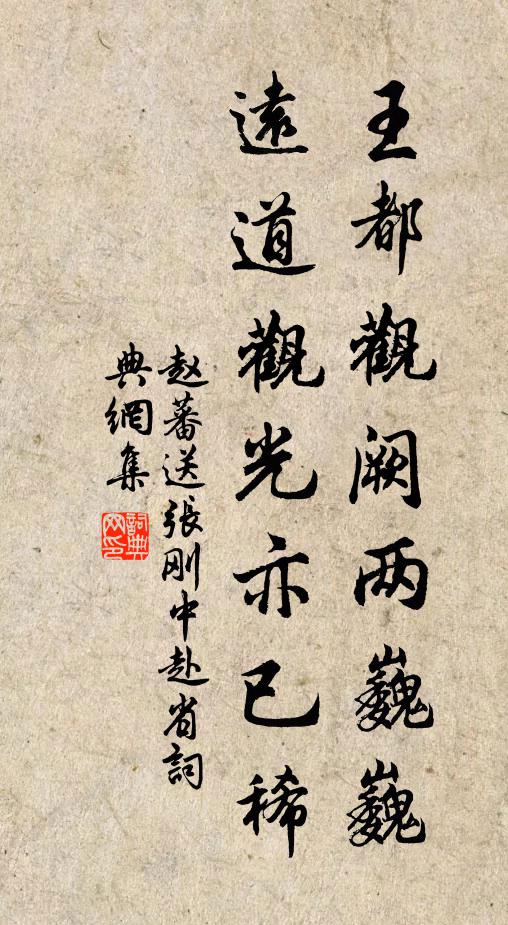 王都觀阙两巍巍
遠道觀光亦已稀
赵蕃送張刚中赴省詞
典網集
詞典网印